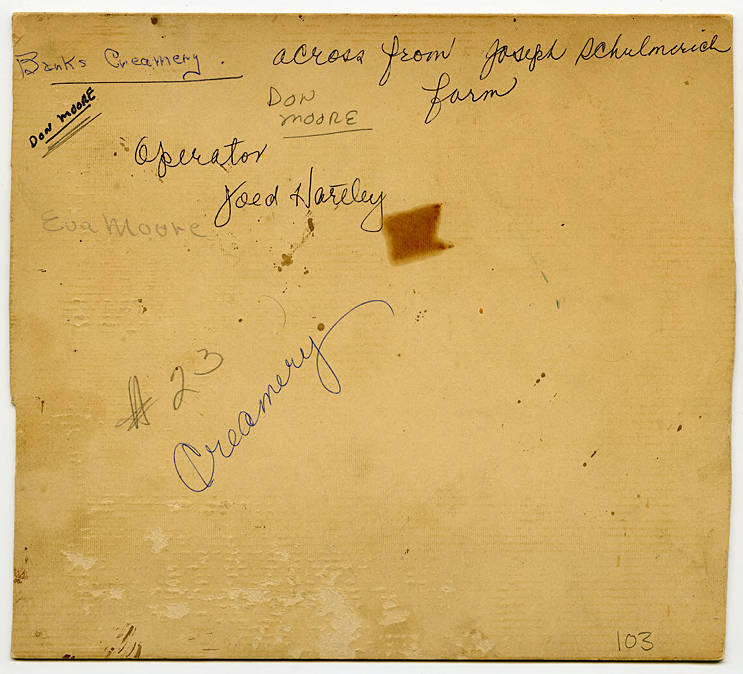 Banks Creamery. across from Joseph Schulmerich
farm
DON MOORE
DON
MOORE
Operator
Joed Hartley
Eva Moore
# 23
Creamery
103